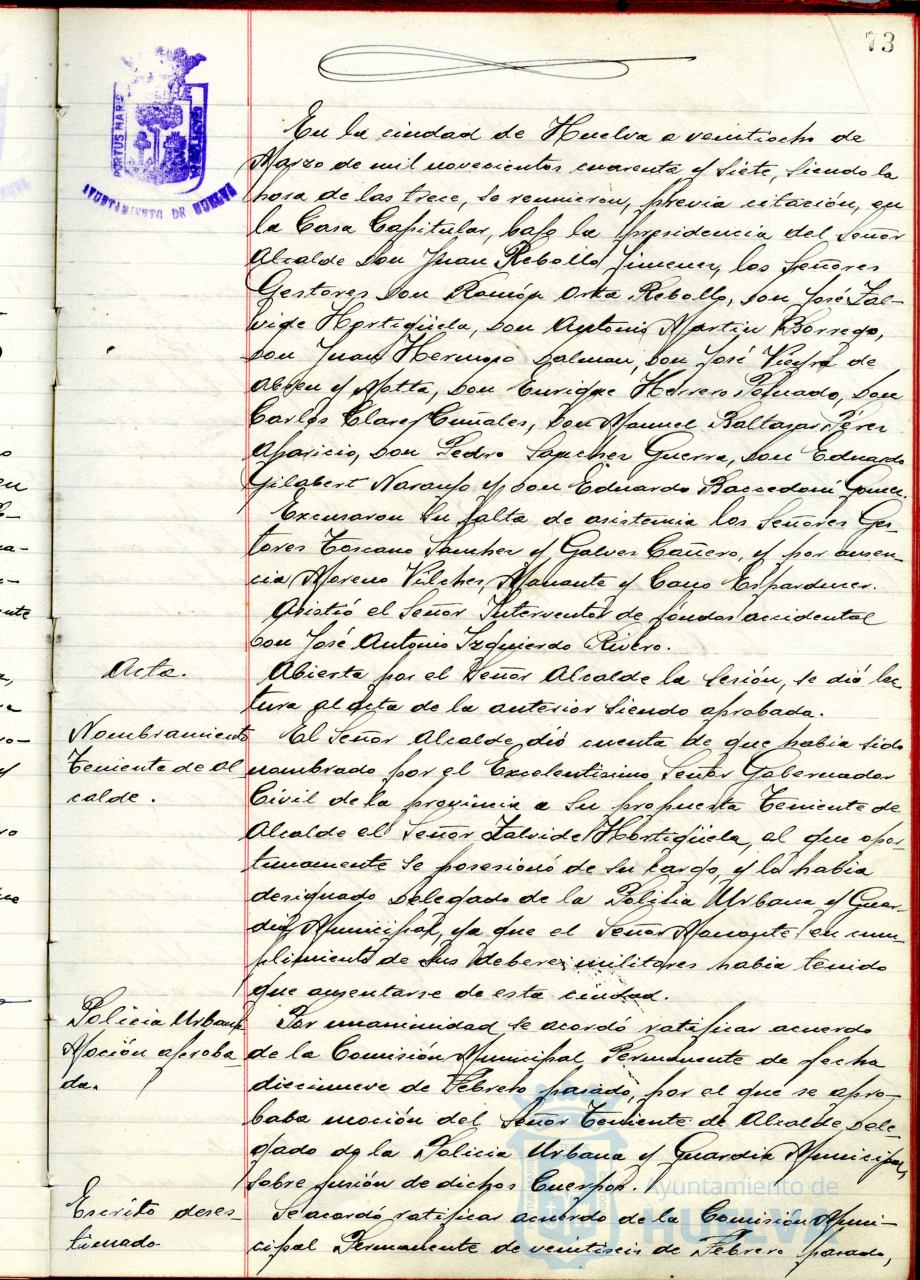 73
PORTUS MARIS
AYUNTAMIENTO DE HUELVA
En la ciudad de Huelva a veintiocho de
Marzo de mil novecientos cuarenta y siete, siendo la
hora de las trece, se reunieron, previa citación, en
la Casa Capitular, bajo la presidencia del Señor
Alcalde Don Juan Rebollo Jimenez, los Señores
Gestores Don Ramón Orta Rebollo, Don José Zal-
vide Hortigüela, Don Antonio Martin Borrego,
Don Juan Hermoso Dalman, Don José Vieyra de
Abreu y Motta, Don Enrique Herrero Peinado, Don
Carlos Clarez Cuñales, Don Manuel Baltazar Pérez
Aparicio, Don Pedro Sanchez Guerra, Don Eduardo
Gilabert Naranjo y Don Eduardo Baccedoni Gomez.
Excusaron su falta de asistencia los Señores Ges-
tores Toscano Sanchez y Galvez Cañero, y por ausen-
cia Moreno Vilchez, Manante y Cano Esparducer.
Asistió el Señor Interventor de fondos accidental
Don José Antonio Izquierdo Rivero.
Acta.
Abierta por el Señor Alcalde la sesión, se dió lec-
tura al acta de la anterior siendo aprobada.
Nombramiento
Teniente de Al
calde.
El Señor Alcalde dió cuenta de que habia sido
nombrado por el Excelentisimo Señor Gobernador
Civil de la provincia a su propuesta Teniente de
Alcalde el Señor Zalvide Hortigüela, al que opor-
tunamente se posesionó de su cargo, y lo habia
designado Delegado de la Policia Urbana y Guar-
dia Municipal, ya que el Señor Manante en cum-
plimiento de sus deberes militares habia tenido
que ausentarse de esta ciudad.
Policia Urbana
Moción aproba
da.
Por unanimidad se acordó ratificar acuerdo
de la Comisión Municipal Permanente de fecha
diecinueve de Febrero pasado, por el que se apro-
baba moción del Señor Teniente de Alcalde Dele-
gado de la Policia Urbana y Guardia Municipal,
sobre fusión de dichos Cuerpos.
Escrito deses-
timado
Se acordó ratificar acuerdo de la Comisión Muni-
cipal Permanente de veintiseis de Febrero pasado,
Ayuntamiento de
HUELVA